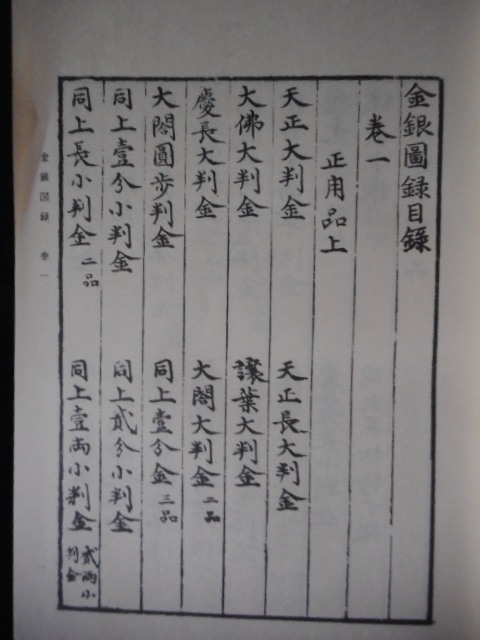 金銀圖録目録
卷一
正用品上
天正大判金
天正長大判金
大佛大判金
讓葉大判金
慶長大判金
大閤大判金 二品
大閤圓歩判金
同上壹分金 三品
同上壹分小判金
同上貳分小判金
同上長小判金 二品
同上壹両小判金 貳両小判金
金銀図録 巻一